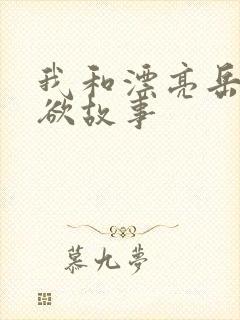 我和漂亮岳
欲故事
慕九夢